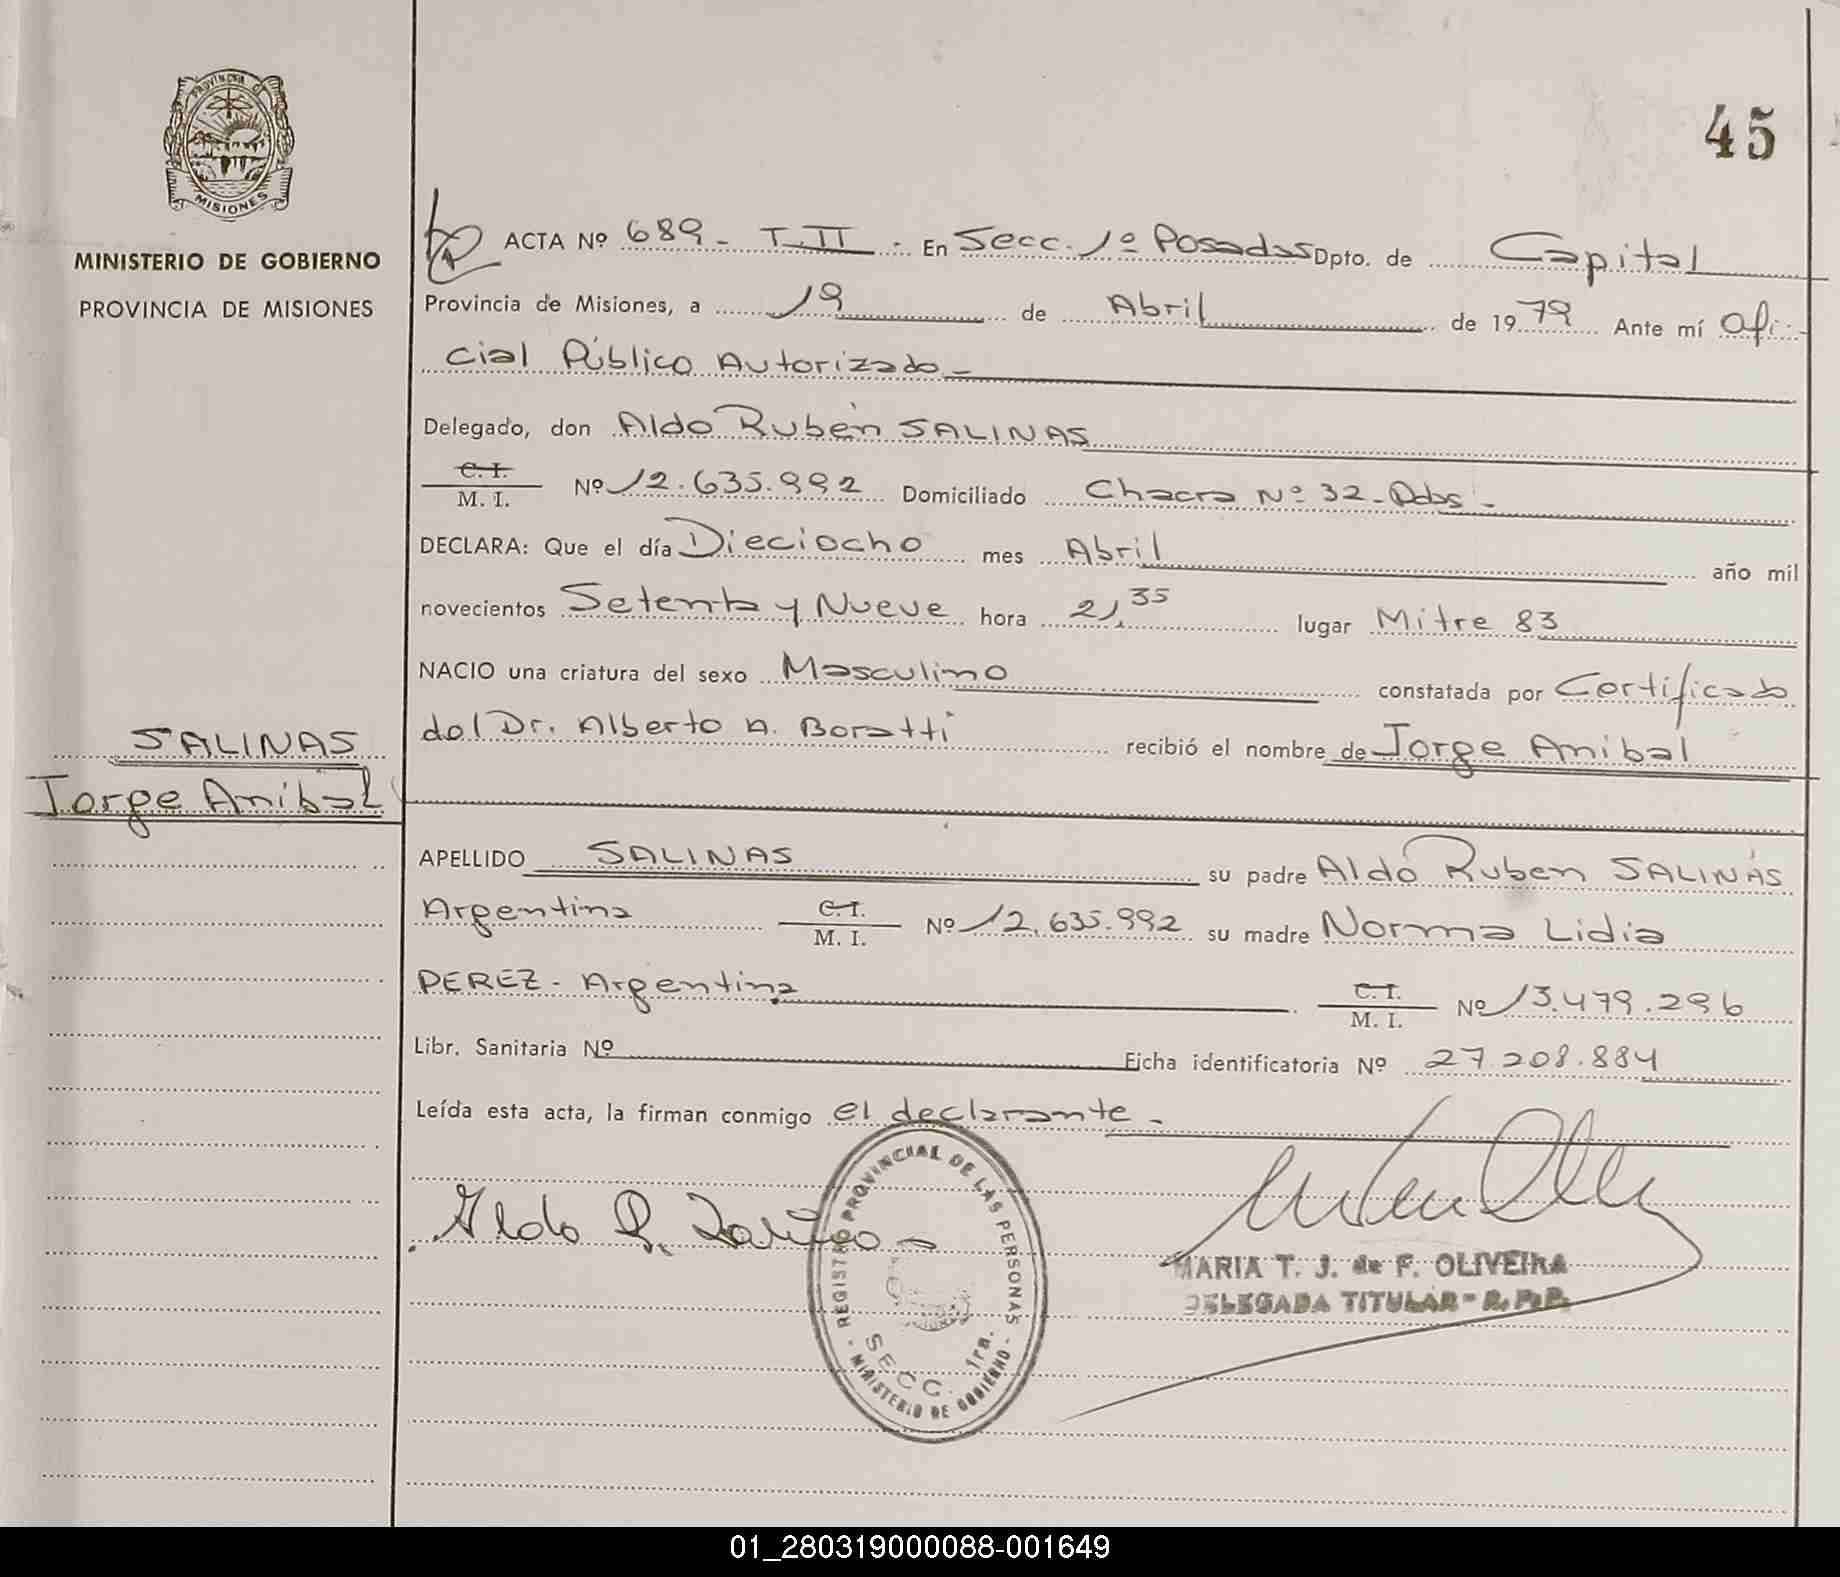 45
PROVINCIA DE
MISIONES
MINISTERIO DE GOBIERNO
PROVINCIA DE MISIONES
SALINAS
Jorge Anibal
ACTA Nº 689 - T. II - En Secc. 1º Posadas Dpto. de Capital
Provincia de Misiones, a 19 de Abril de 1979 Ante mí Ofi-
cial Público Autorizado -
Delegado, don Aldo Rubén SALINAS
C. I.
M. I. Nº 12.635.992 Domiciliado Chacra Nº 32 - Pdas -
DECLARA: Que el día Dieciocho mes Abril año mil
novecientos Setenta y Nueve hora 21,35 lugar Mitre 83
NACIO una criatura del sexo Masculino constatada por Certificado
del Dr. Alberto A. Boratti recibió el nombre de Jorge Anibal
APELLIDO SALINAS su padre Aldo Ruben SALINAS
Argentina C. I. / M. I. Nº 12.635.992 su madre Norma Lidia
PEREZ - Argentina C. I. / M. I. Nº 13.479.296
Libr. Sanitaria Nº Ficha identificatoria Nº 27.208.884
Leída esta acta, la firman conmigo el declarante -
Aldo R.
REGISTRO PROVINCIAL DE LAS PERSONAS
SECC. 1ra.
- MINISTERIO DE GOBIERNO -
MARIA T. J. de F. OLIVEIRA
DELEGADA TITULAR - R. P. P.
01_280319000088-001649